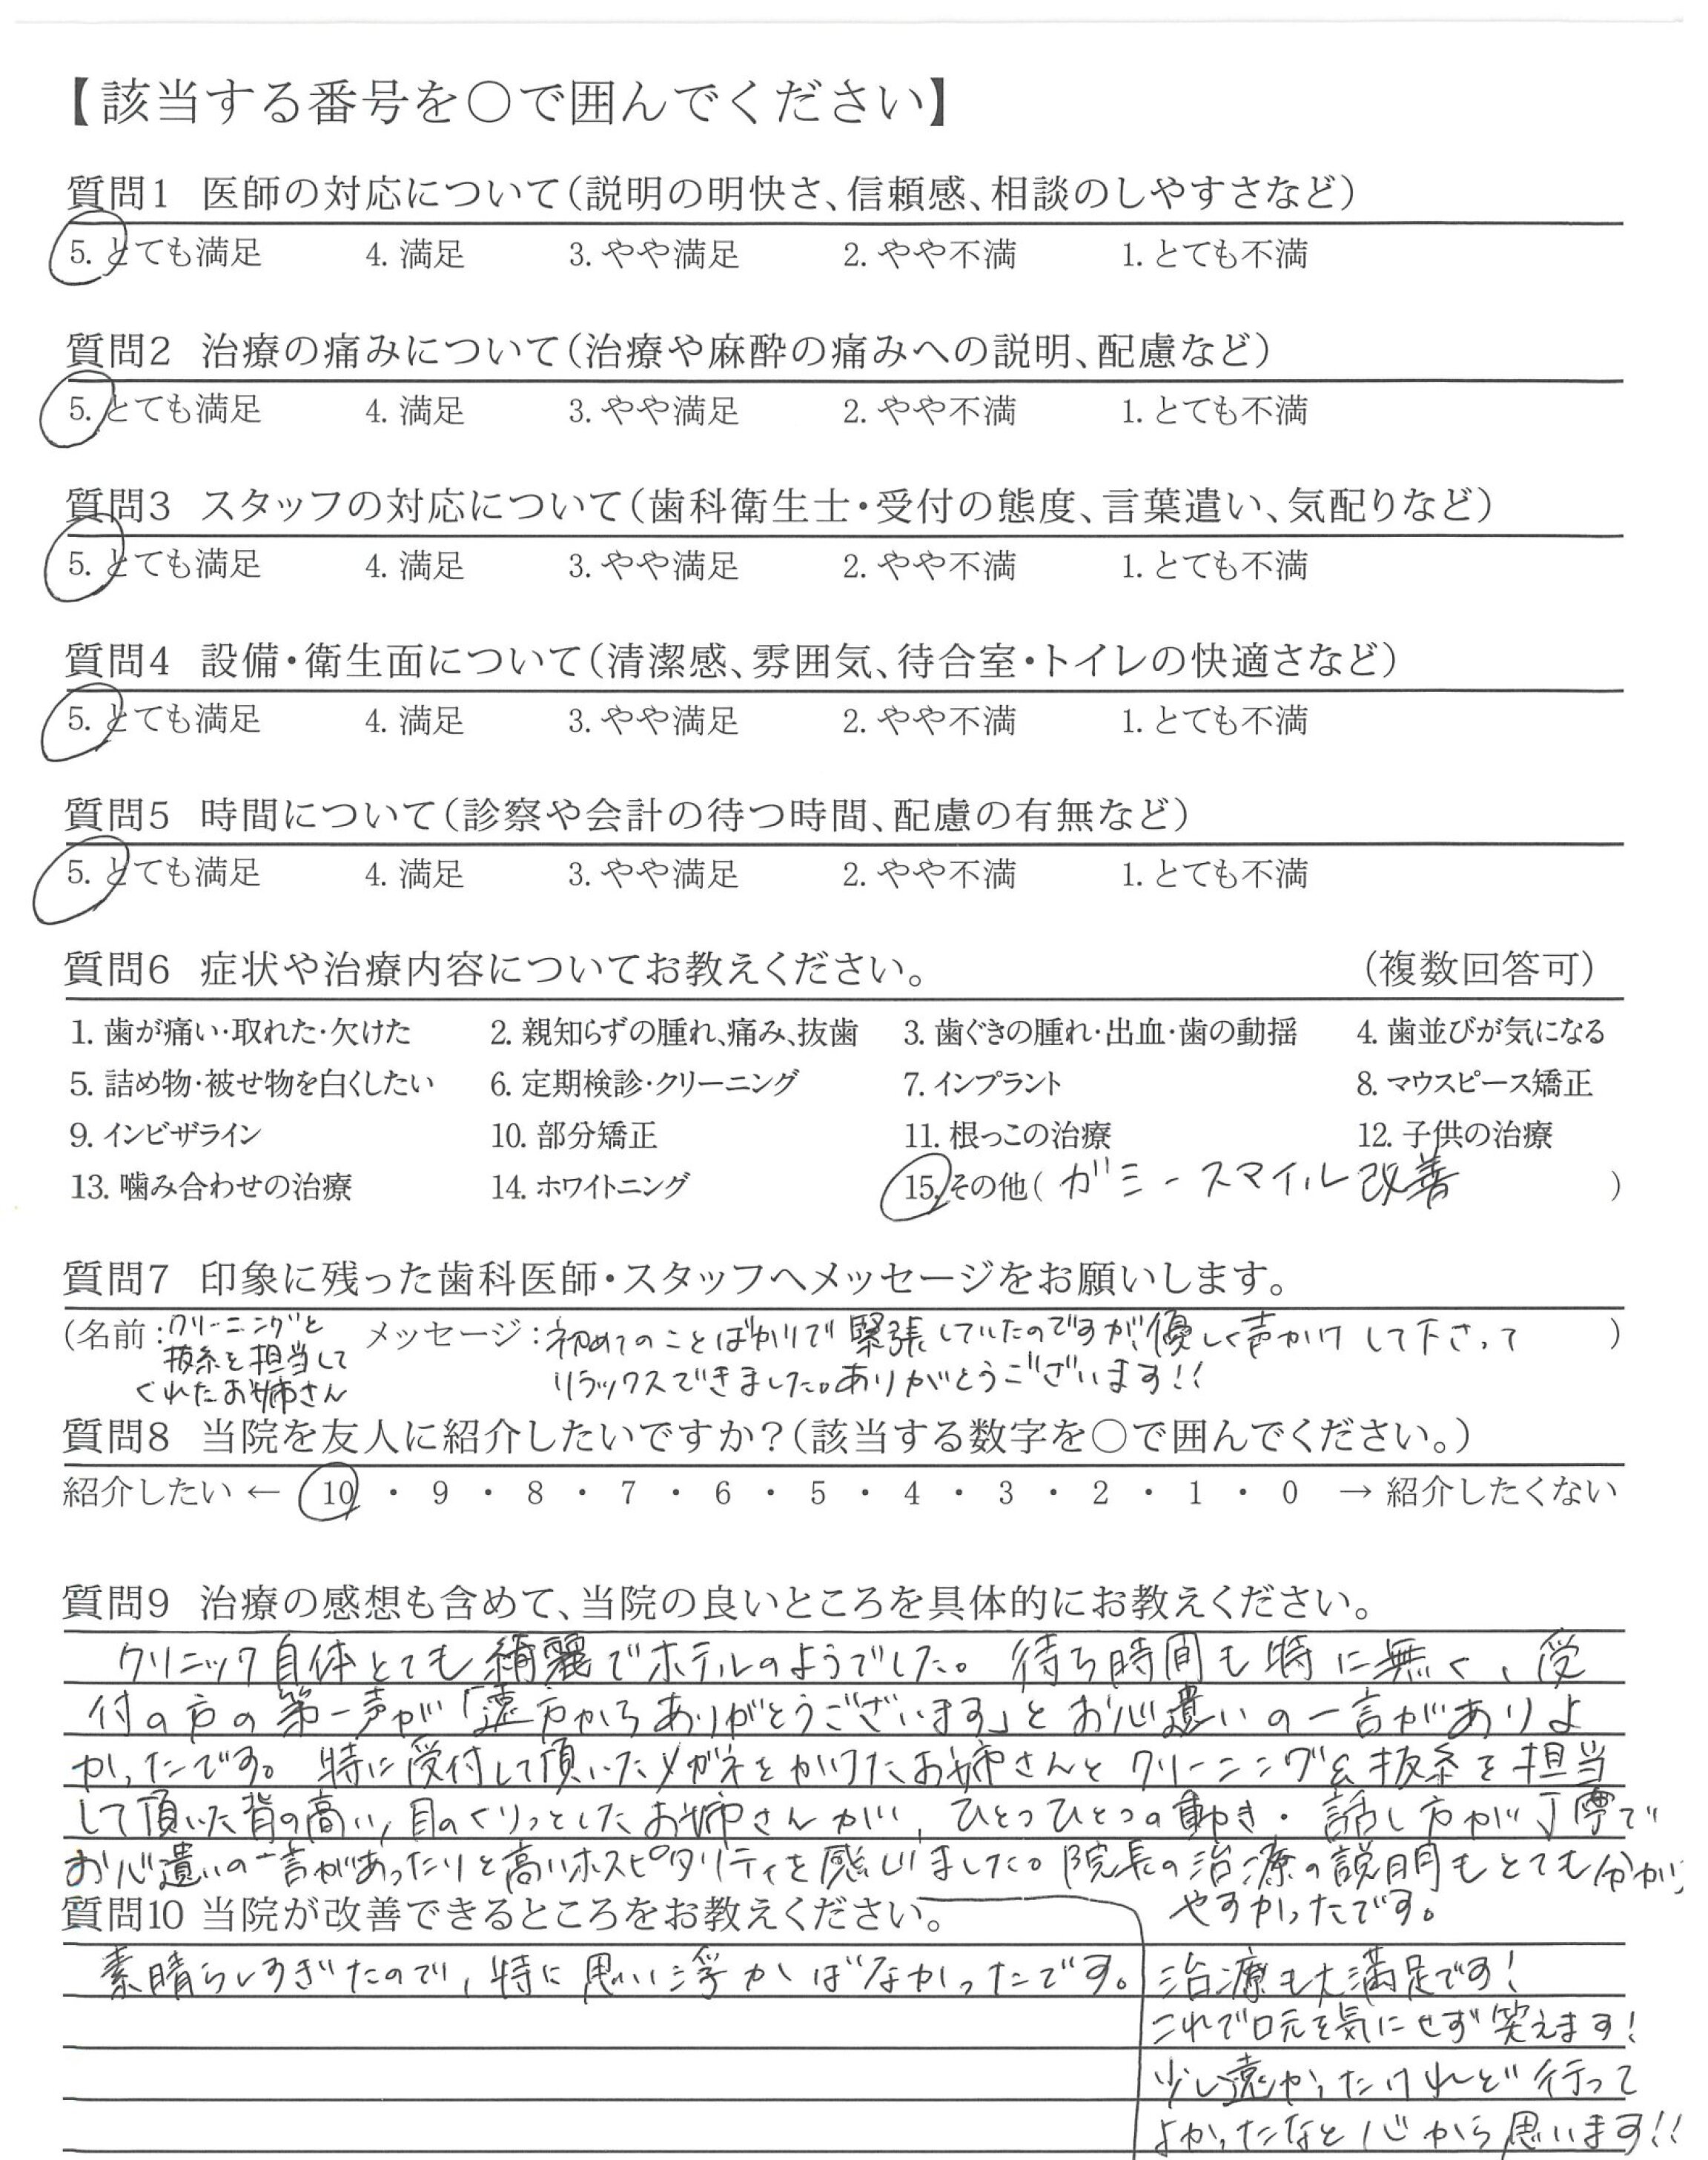 【該当する番号を〇で囲んでください】
質問1 医師の対応について(説明の明快さ、信頼感、相談のしやすさなど)
5. とても満足 4. 満足 3. やや満足 2. やや不満 1. とても不満
質問2 治療の痛みについて(治療や麻酔の痛みへの説明、配慮など)
5. とても満足 4. 満足 3. やや満足 2. やや不満 1. とても不満
質問3 スタッフの対応について(歯科衛生士・受付の態度、言葉遣い、気配りなど)
5. とても満足 4. 満足 3. やや満足 2. やや不満 1. とても不満
質問4 設備・衛生面について(清潔感、雰囲気、待合室・トイレの快適さなど)
5. とても満足 4. 満足 3. やや満足 2. やや不満 1. とても不満
質問5 時間について(診察や会計の待つ時間、配慮の有無など)
5. とても満足 4. 満足 3. やや満足 2. やや不満 1. とても不満
質問6 症状や治療内容についてお教えください。 (複数回答可)
1. 歯が痛い・取れた・欠けた 2. 親知らずの腫れ、痛み、抜歯 3. 歯ぐきの腫れ・出血・歯の動揺 4. 歯並びが気になる
5. 詰め物・被せ物を白くしたい 6. 定期検診・クリーニング 7. インプラント 8. マウスピース矯正
9. インビザライン 10. 部分矯正 11. 根っこの治療 12. 子供の治療
13. 噛み合わせの治療 14. ホワイトニング 15. その他( ガミースマイル改善 )
質問7 印象に残った歯科医師・スタッフへメッセージをお願いします。
(名前:クリーニングと メッセージ:初めてのことばかりで緊張していたのですが優しく声かけして下さって )
抜糸を担当して リラックスできました。ありがとうございます!!
くれたお姉さん
質問8 当院を友人に紹介したいですか?(該当する数字を〇で囲んでください。)
紹介したい ← 10 ・ 9 ・ 8 ・ 7 ・ 6 ・ 5 ・ 4 ・ 3 ・ 2 ・ 1 ・ 0 → 紹介したくない
質問9 治療の感想も含めて、当院の良いところを具体的にお教えください。
クリニック自体とても綺麗でホテルのようでした。待ち時間も特に無く、受
付の方の第一声が「遠方からありがとうございます」とお心遣いの一言がありよ
かったです。特に受付して頂いたメガネをかけたお姉さんとクリーニング&抜糸を担当
して頂いた背の高い、目のくりっとしたお姉さんが、ひとつひとつの動き・話し方が丁寧で
お心遣いの一言があったりと高いホスピタリティを感じました。院長の治療の説明もとても分かり
やすかったです。
治療も大満足です!
これで口元を気にせず笑えます!
少し遠かったけれど行って
よかったなと心から思います!!
質問10 当院が改善できるところをお教えください。
素晴らしすぎたので、特に思い浮かばなかったです。